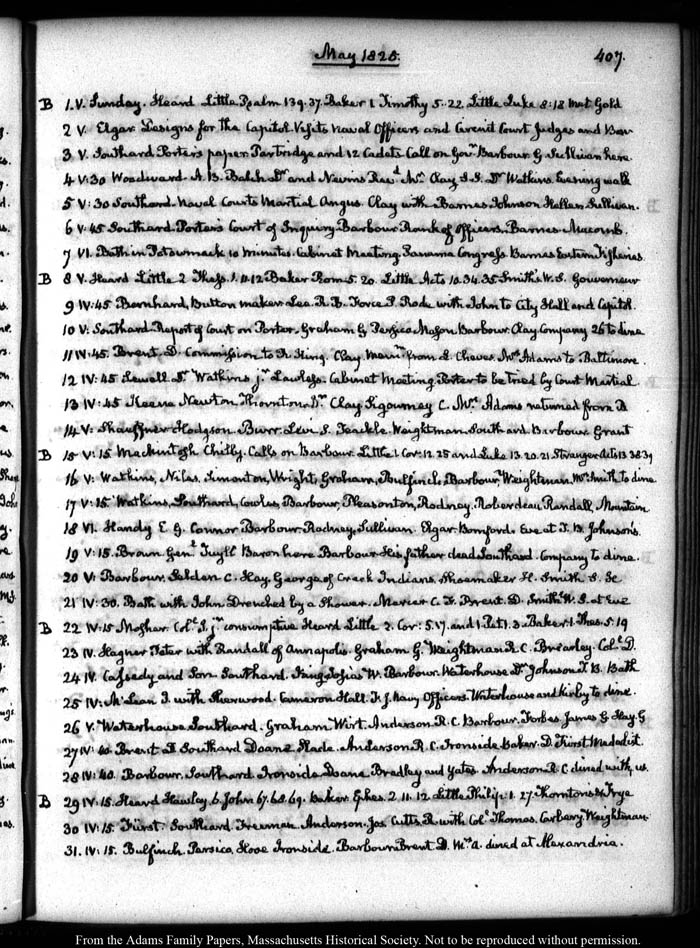 May 1825.
407.
B 1. V. Sunday. Heard Little. Psalm 139. 37. Baker 1 Timothy 5. 22. Little Luke 8: 18 met Gold
2 V. Elgar. Designs for the Capitol. Visits Naval Officers and Circuit Court Judges and Bar
3 V. Southard Porter's paper Partridge and 12 Cadets Call on Govr Barbour G Sullivan here
4 V: 30 Woodward. A. B. Balch Dr and Nevins Revd Mr Clay Dr Watkins Evening walk
5 V: 30 Southard. Naval Courts Martial Angus. Clay with Barnes Johnson Hellen Sullivan.
6 V. 45 Southard. Porter's Court of Inquiry. Barbour Rank of Officers. Barnes. Macomb.
7 VI. Bath in Potowmack 10 minutes. Cabinet Meeting. Panama Congress. Barnes Eastern Fisheries
B 8 V. Heard Little 2 Thess. 1. 11. 12 Baker Rom. 5. 20. Little Acts 10. 34. 35 Smith's W. S. Gouverneur
9 IV: 45 Bernhard, Button maker Lee. R. B. Force P. Rode with John to City Hall and Capitol.
10 V: Southard Report of Court on Porter. Graham G Persico Mason. Barbour. Clay Company 26 to dine
11 IV. 45. Brent. D. Commission to R. King. Clay from L. Cheves. Mrs Adams to Baltimore
12 IV: 45 Sewall Dr Watkins jr Lawless. Cabinet Meeting. Porter to be tried by Court Martial
13 IV: 45 Keene Newton Thornton Dr Clay Sigourney C. Mrs Adams returned from B
14 V: Shauffner Hodgson. Burr. Levi S. Teackle. Weightman. Southard Barbour. Grant
B 15 V: 15 Mackintosh Chilly. Calls on Barbour. Little 1 Cor: 12. 25 and Luke 13. 20. 21 Stranger Acts 13 38 39
16 V: Watkins, Niles, Simonton, Wright, Graham, Bulfinch, Barbour, Weightman. Mr Smith to dine
17 V: 15 Watkins, Southard, Cowles, Barbour, Pleasonton, Rodney. Roberdeau Randall, Mountain
18 VI. Handy E. G. Connor Barbour Rodney, Sullivan. Elgar Bomford. Eve at T. B. Johnson's.
19 V: 15. Brown Genl Tuyll Baron here Barbour His father dead Southard. Company to dine.
20 V: Barbour, Selden C. Hay. George of Creek Indians. Shoemaker H. Smith S.
21 IV: 30. Bath with John Drenched by a Shower. Mercer C. F. Brent. D. Smith W. S. at Eve
B 22 IV: 15 Mosher Coll J. jr consumptive Heard Little 2. Cor: 5. 17. and 1 Pet: 1. 3. Baker. 1. Thes. 5. 19
23 IV. Hagner Peter with Randall of Annapolis. Graham G. Weightman R. C. Brearley. Coll D.
24 IV. Cassedy and Son Southard. King Josias W. Barbour. Waterhouse Dr Johnson T. B. Bath
25 IV. McLean J. with Sherwood. Cameron Hall. T. J. Navy Officers Waterhouse and Kirby to dine.
26 V. Waterhouse Southard. Graham Wirt. Anderson. R. C. Barbour. Forbes James G Hay. G
27 IV: 40. Brent D Southard Doane Slade. Anderson R. C. Ironside Baker. D. Fürst Medalist.
28 IV: 40. Barbour. Southard Ironside Doane Bradley and Yates Anderson R. C dined with us.
B 29 IV. 15. Heard Hawley 6. John 67. 68. 69. Baker Ephes. 2. 11. 12 Little Philip: 1. 27 Thornton & Frye
30 IV: 15. Fürst. Southard Freeman Anderson. Jos. Cutts. R. with Coll Thomas. Carbery Weightman.
31. IV: 15. Bulfinch. Persico, Hove Ironside. Barbour Brent D. Mrs A. dined at Alexandria.
From the Adams Family Papers, Massachusetts Historical Society. Not to be reproduced without permission.